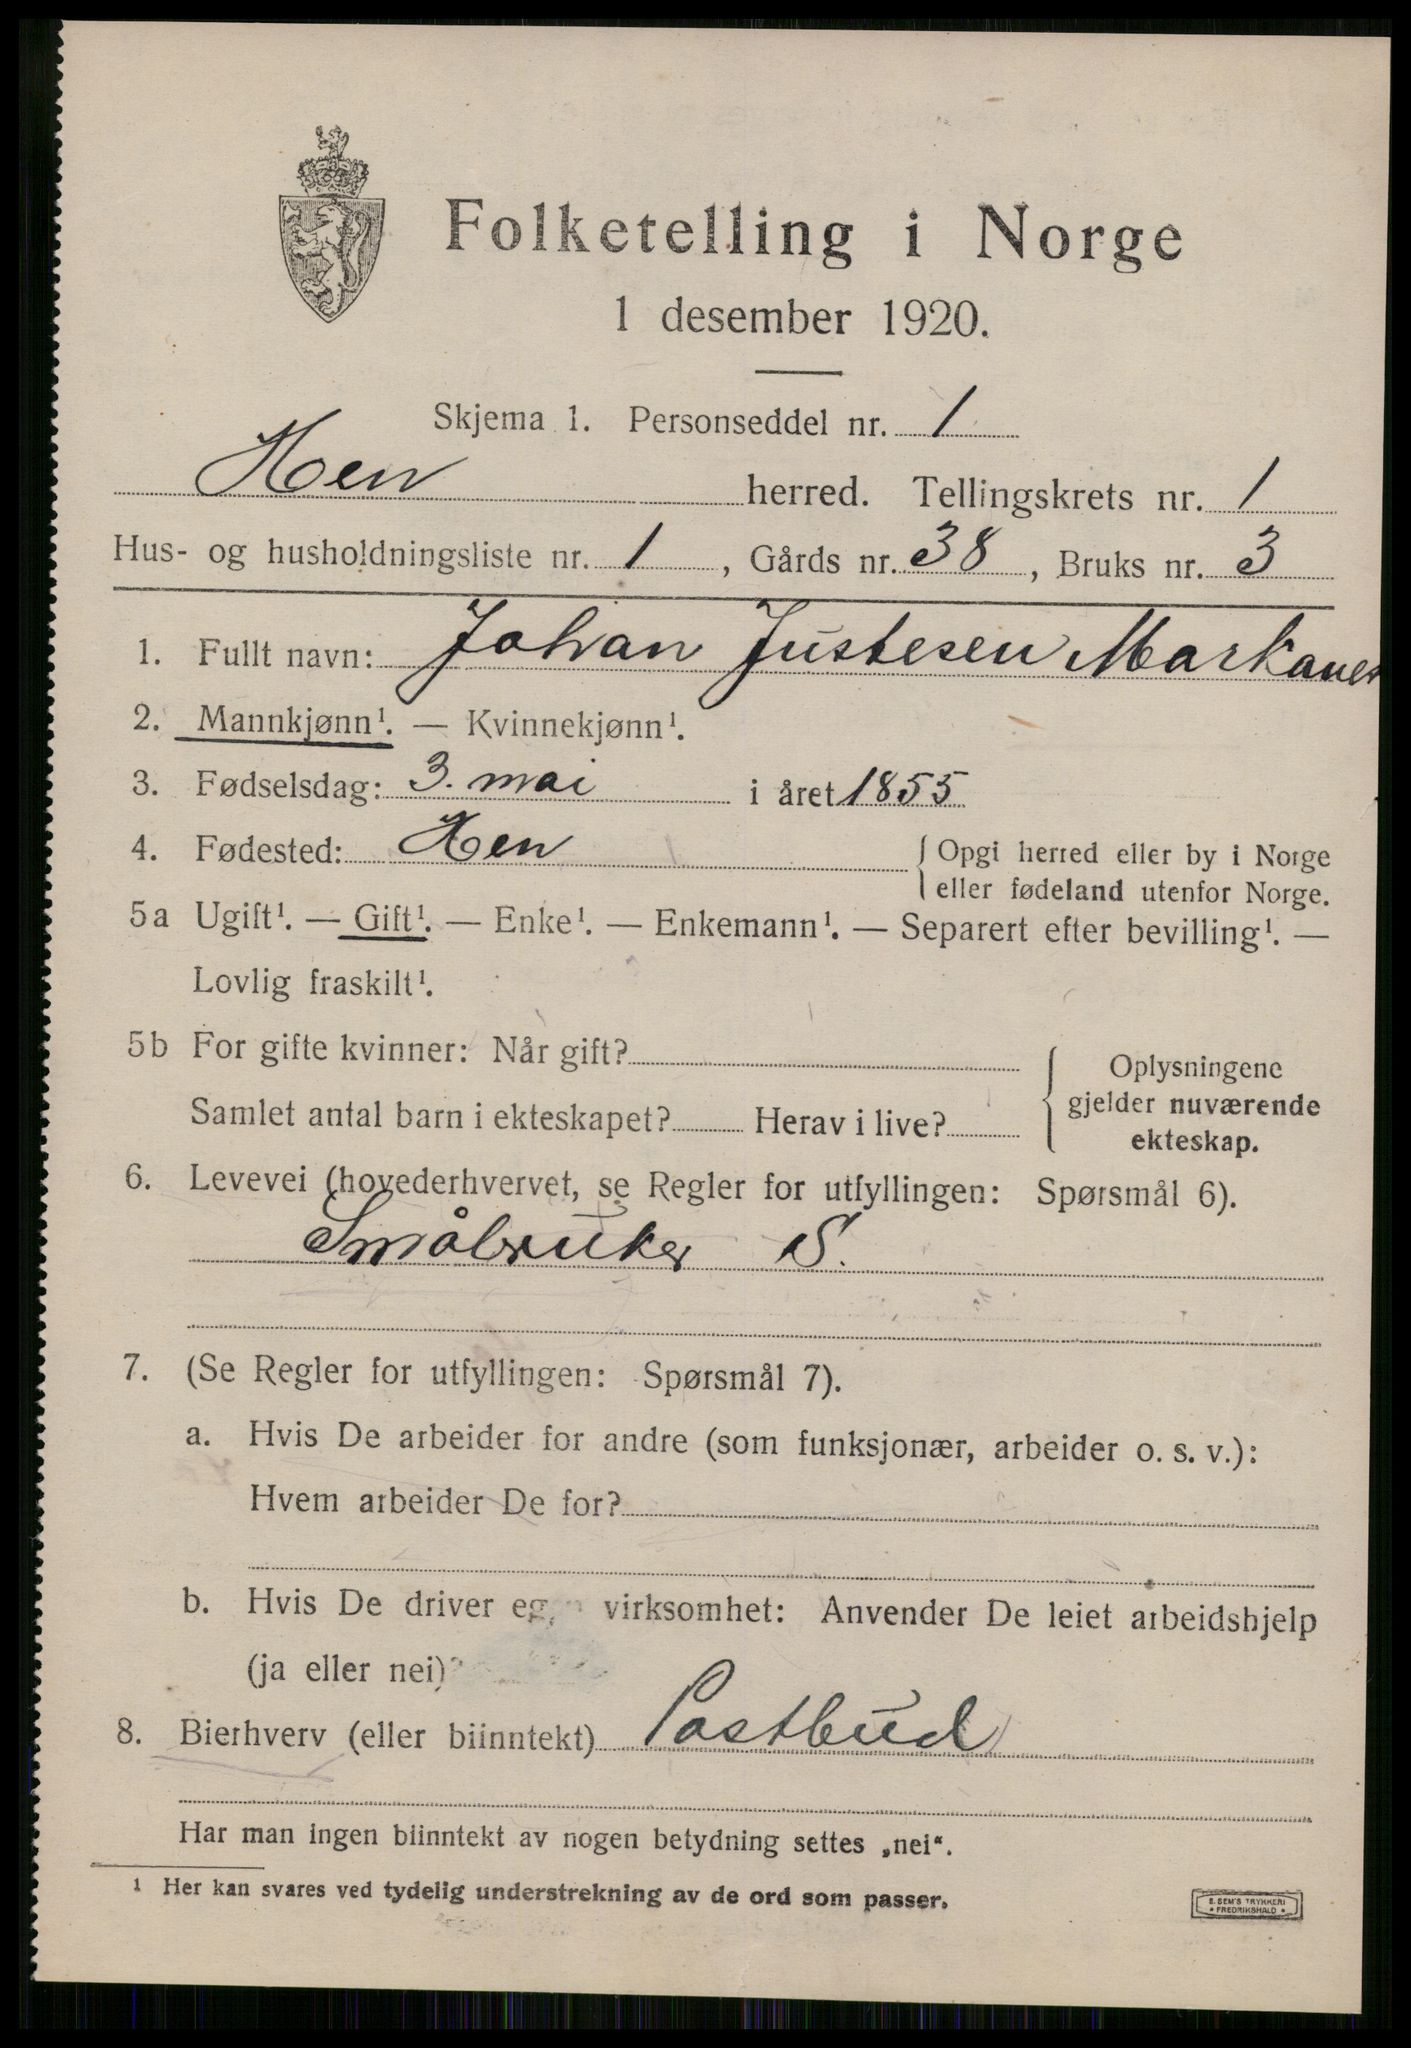 Folketelling i Norge
1 desember 1920.
Skjema 1. Personseddel nr. 1
Hen herred. Tellingskrets nr. 1
Hus- og husholdningsliste nr. 1, Gårds nr. 38, Bruks nr. 3
1. Fullt navn: Johan Justesen Markanes
2. Mannkjønn¹. — Kvinnekjønn¹.
3. Fødselsdag: 3. mai i året 1855
4. Fødested: Hen { Opgi herred eller by i Norge
eller fødeland utenfor Norge.
5a Ugift¹. — Gift¹. — Enke¹. — Enkemann¹. — Separert efter bevilling¹. —
Lovlig fraskilt¹.
5b For gifte kvinner: Når gift?
Samlet antal barn i ekteskapet? Herav i live?
Oplysningene
gjelder nuværende
ekteskap.
6. Levevei (hovederhvervet, se Regler for utfyllingen: Spørsmål 6).
Småbruker S.
7. (Se Regler for utfyllingen: Spørsmål 7).
a. Hvis De arbeider for andre (som funksjonær, arbeider o. s. v.):
Hvem arbeider De for?
b. Hvis De driver egen virksomhet: Anvender De leiet arbeidshjelp
(ja eller nei)?
8. Bierhverv (eller biinntekt) Postbud
Har man ingen biinntekt av nogen betydning settes „nei“.
¹ Her kan svares ved tydelig understrekning av de ord som passer.
E. SEM'S TRYKKERI
* FREDRIKSHALD *